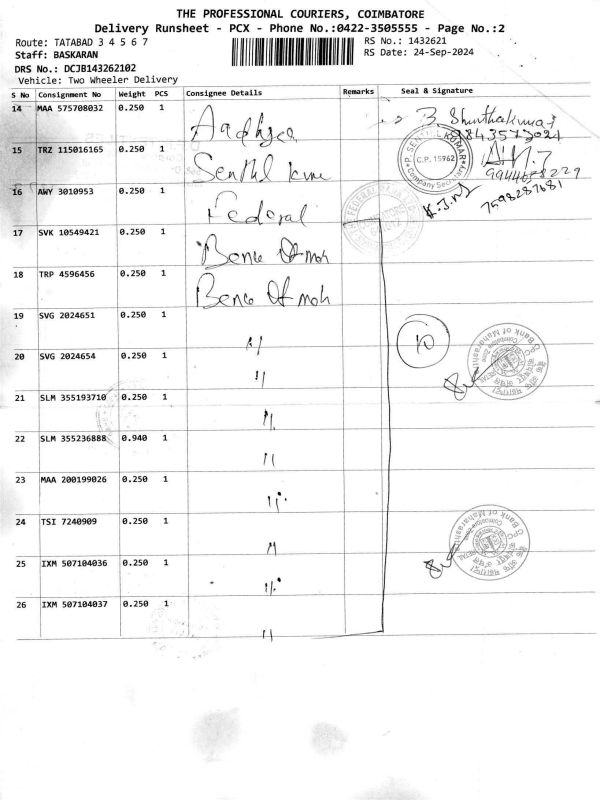 THE PROFESSIONAL COURIERS, COIMBATORE
Delivery Runsheet - PCX - Phone No.:0422-3505555 - Page No.:2
Route: TATABAD 3 4 5 6 7
RS No.: 1432621
Staff: BASKARAN
RS Date: 24-Sep-2024
DRS No.: DCJB143262102
Vehicle: Two Wheeler Delivery
S No Consignment No Weight PCS Consignee Details Remarks Seal & Signature
14 MAA 575708032 0.250 1
9843573021
15 TRZ 115016165 0.250 1 Senthil
P. SENTHIL KUMAR
C.P. 15962
Company Secretary
16 AWY 3010953 0.250 1 Federal
7598287681
17 SVK 10549421 0.250 1 Of mah
18 TRP 4596456 0.250 1 Of mah
19 SVG 2024651 0.250 1 "
10
20 SVG 2024654 0.250 1 "
Bank of Maharashtra
Coimbatore Zone
21 SLM 355193710 0.250 1 "
22 SLM 355236888 0.940 1 "
23 MAA 200199026 0.250 1 "
24 TSI 7240909 0.250 1 "
Bank of Maharashtra
Coimbatore Zone
25 IXM 507104036 0.250 1 "
26 IXM 507104037 0.250 1 "